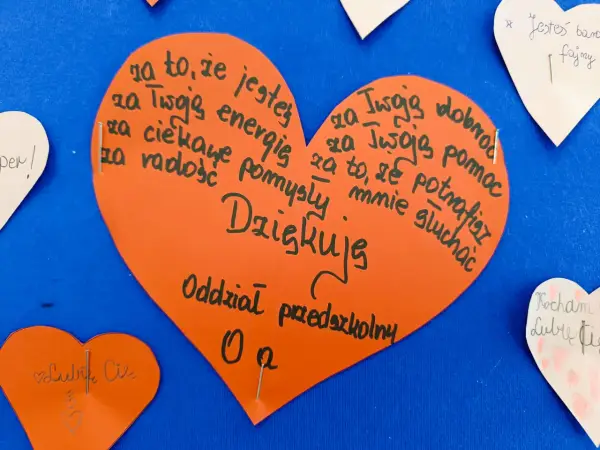 za to, że jesteś
za Twoją energię
za ciekawe pomysły
za radość
za Twoją dobroć
za Twoją pomoc
za to, że potrafisz
mnie słuchać
Dziękuję
Oddział przedszkolny
O a
Lubię Cię
Jesteś
fajny
per!
Kocham
Lubię Cię